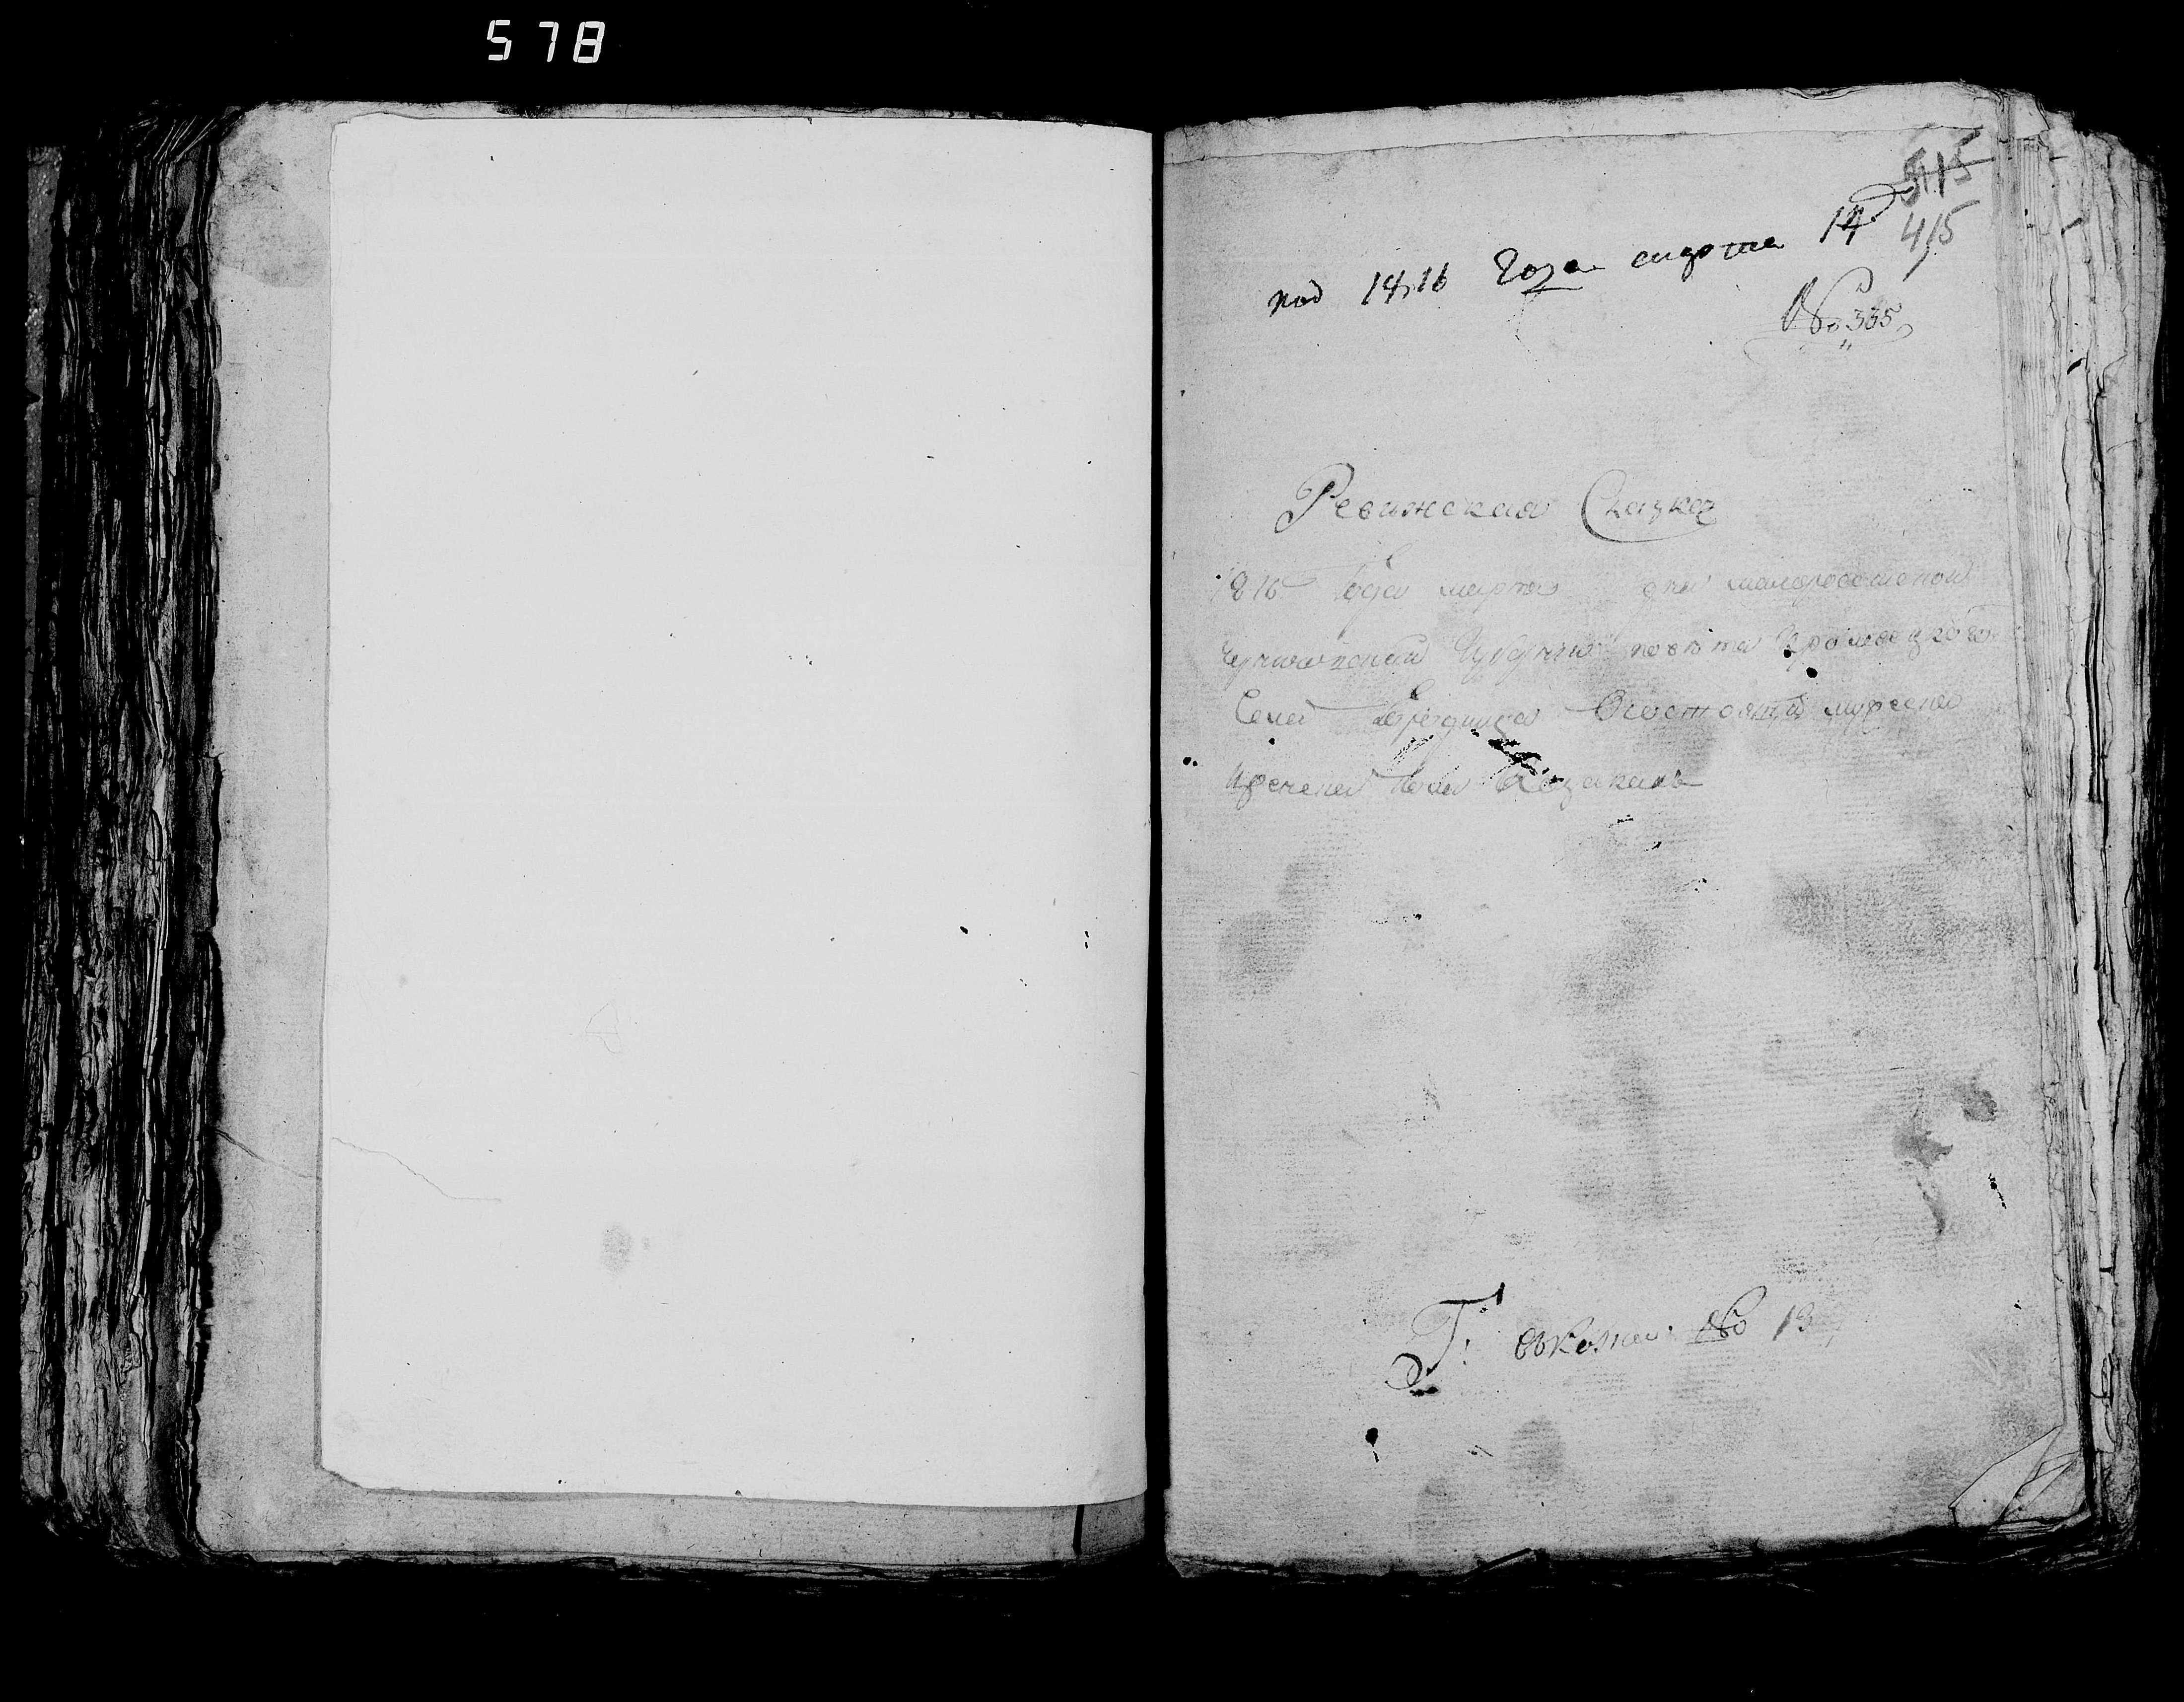 578
515
415
под 1816 года марта 14
№ 335
Ревижская Сказка
1816 Года марта дня малороссийской
Черниговской Губернии повета Кролевецкого
Села о состоящих мужеска
и женска пола Козакахъ
Г: №о 13